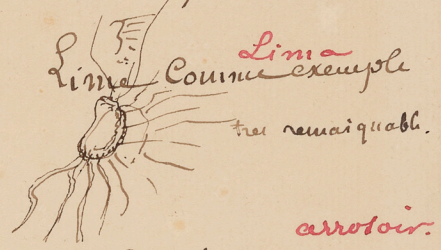 Lima
Lime Comme exemple
tres remarquable.
arrosoir.